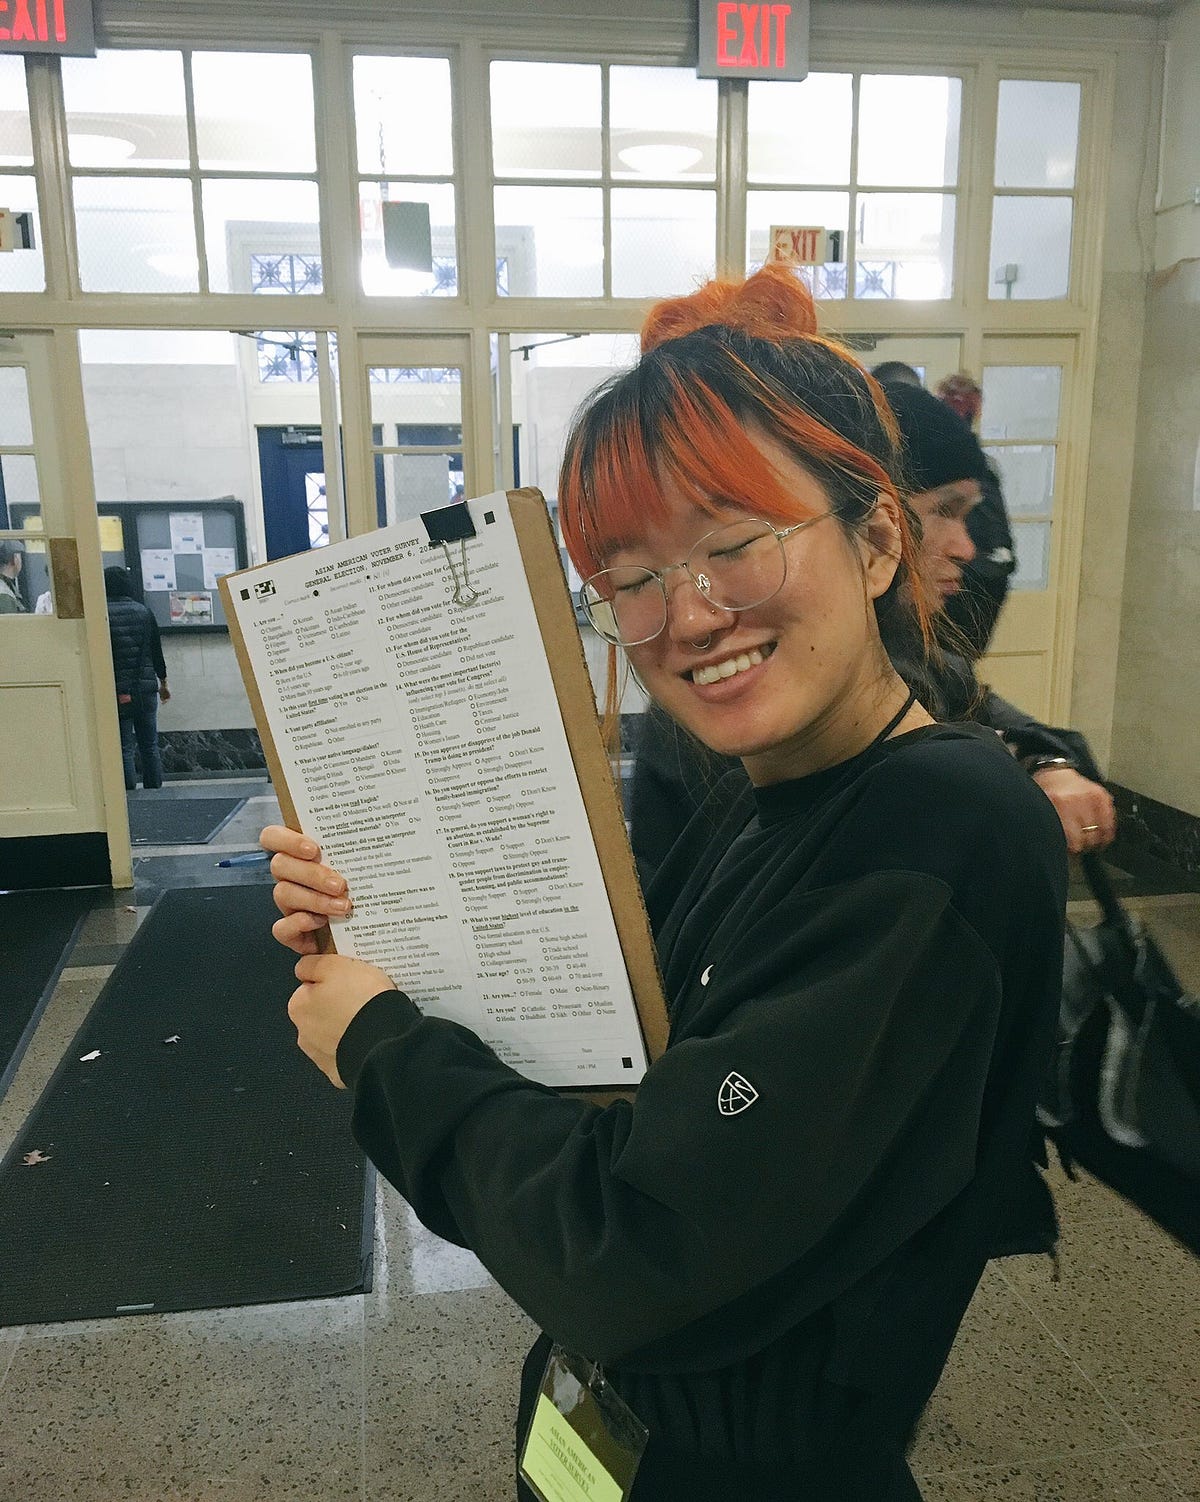 EXIT
EXIT
EXIT
ASIAN AMERICAN VOTER SURVEY
GENERAL ELECTION, NOVEMBER 6,
Correct mark: Incorrect marks:
1. Are you ...?
Chinese Korean Asian Indian
Bangladeshi Pakistani Indo-Caribbean
Filipino Vietnamese Cambodian
Japanese Arab Latino
Other
2. When did you become a U.S. citizen?
Born in the U.S. 0-2 year ago
3-5 years ago 6-10 years ago
More than 10 years ago
3. Is this your first time voting in an election in the
United States? Yes No
4. Your party affiliation?
Democrat Not enrolled in any party
Republican Other
5. What is your native language/dialect?
English Cantonese Mandarin Korean
Tagalog Hindi Bengali Urdu
Gujarati Punjabi Vietnamese Khmer
Arabic Japanese Other
6. How well do you read English?
Very well Moderate Not well Not at all
7. Do you prefer voting with an interpreter
and/or translated materials? Yes No
8. In voting today, did you use an interpreter
or translated written materials?
Yes, provided at the poll site
Yes, I brought my own interpreter or materials
none provided, but was needed.
not needed.
it difficult to vote because there was no
assistance in your language?
Yes No Translations not needed.
10. Did you encounter any of the following when
you voted? (fill in all that apply)
required to show identification
required to prove U.S. citizenship
name missing or error at list of voters
provisional ballot
did not know what to do
poll workers
11. For whom did you vote for
Democratic candidate
Other candidate
12. For whom did you vote for
Democratic candidate Republican candidate
Other candidate Did not vote
13. For whom did you vote for the
U.S. House of Representatives?
Democratic candidate Republican candidate
Other candidate Did not vote
14. What were the most important factor(s)
influencing your vote for Congress?
(only select top 3 issues), do not select all)
Immigration/Refugees Economy/Jobs
Education Environment
Health Care Taxes
Housing Criminal Justice
Women's Issues Other
15. Do you approve or disapprove of the job Donald
Trump is doing as president?
Strongly Approve Approve Don't Know
Disapprove Strongly Disapprove
16. Do you support or oppose the efforts to restrict
family-based immigration?
Strongly Support Support Don't Know
Oppose Strongly Oppose
17. In general, do you support a woman's right to
an abortion, as established by the Supreme
Court in Roe v. Wade?
Strongly Support Support Don't Know
Oppose Strongly Oppose
18. Do you support laws to protect gay and trans-
gender people from discrimination in employ-
ment, housing, and public accommodations?
Strongly Support Support Don't Know
Oppose Strongly Oppose
19. What is your highest level of education in the
United States?
No formal education in the U.S.
Elementary school Some high school
High school Trade school
College/university Graduate school
20. Your age? 18-29 30-39 40-49
50-59 60-69 70 and over
21. Are you...? Female Male Non-Binary
22. Are you? Catholic Protestant Muslim
Hindu Buddhist Sikh Other None
AM / PM
ASIAN AMERICAN
VOTER SURVEY